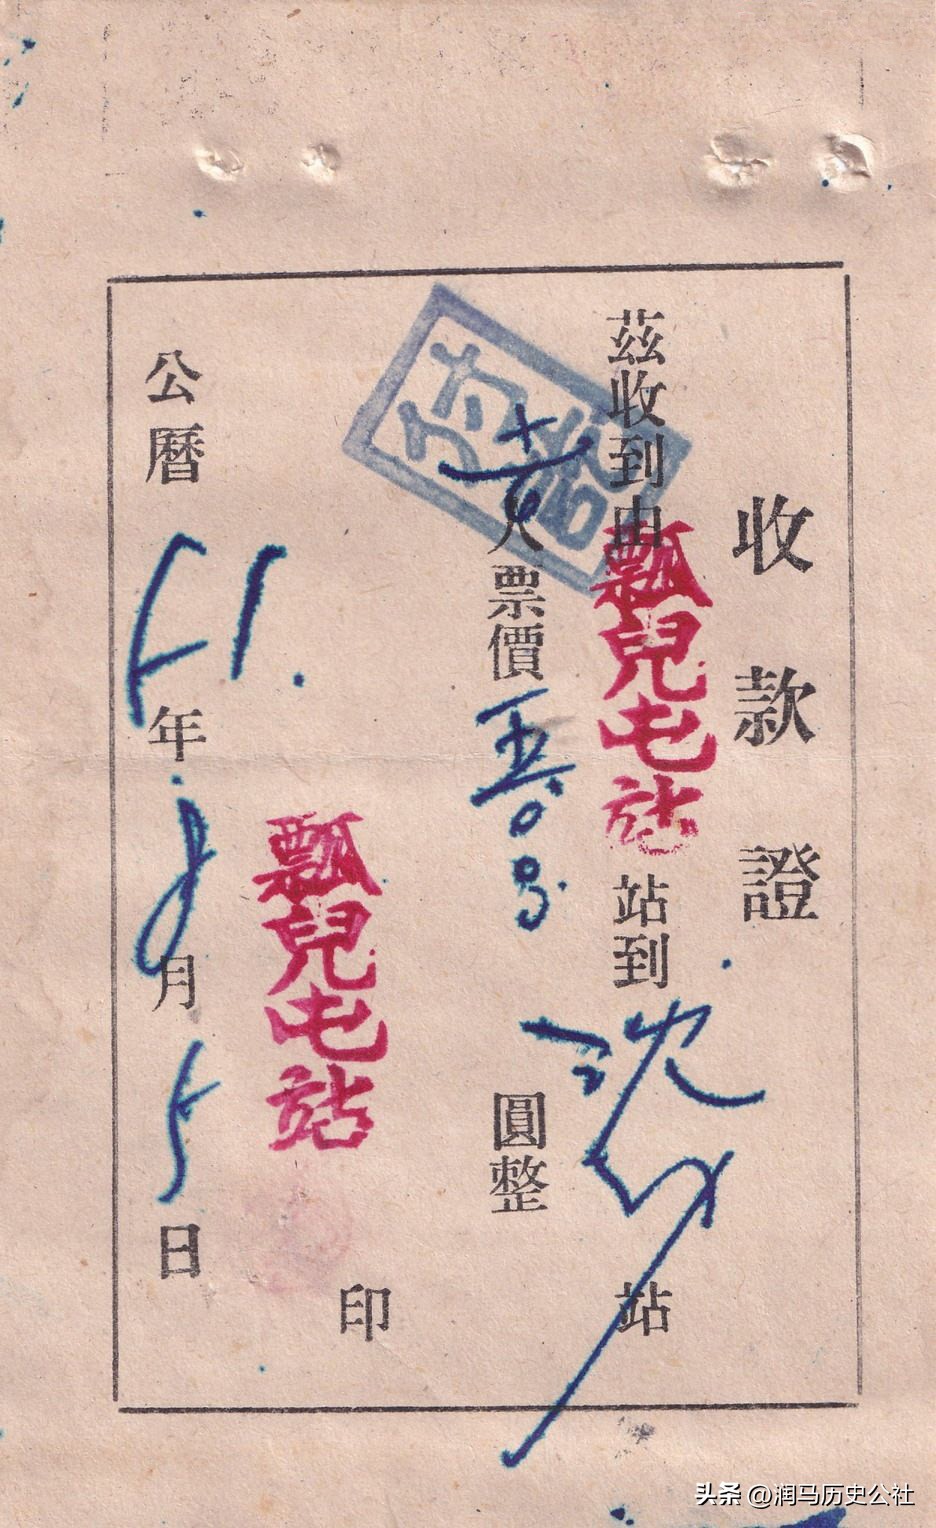 收款證
茲收到由瓢兒屯站站到沈站
付訖
人票價圓整
瓢兒屯站
印
公曆51.年8月5日
头条 @润马历史公社